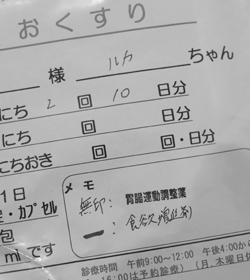 おくすり
様 ルカ ちゃん
にち 2 回 10 日分
にち 回 日分
にちおき 回 回・日分
1日
・カプセル
包
ml です
メモ
無印: 胃腸運動調整薬
ー: 食欲増進剤
診療時間 午前9:00〜12:00 午後4:00から
16:00は予約診療) (月、木曜日